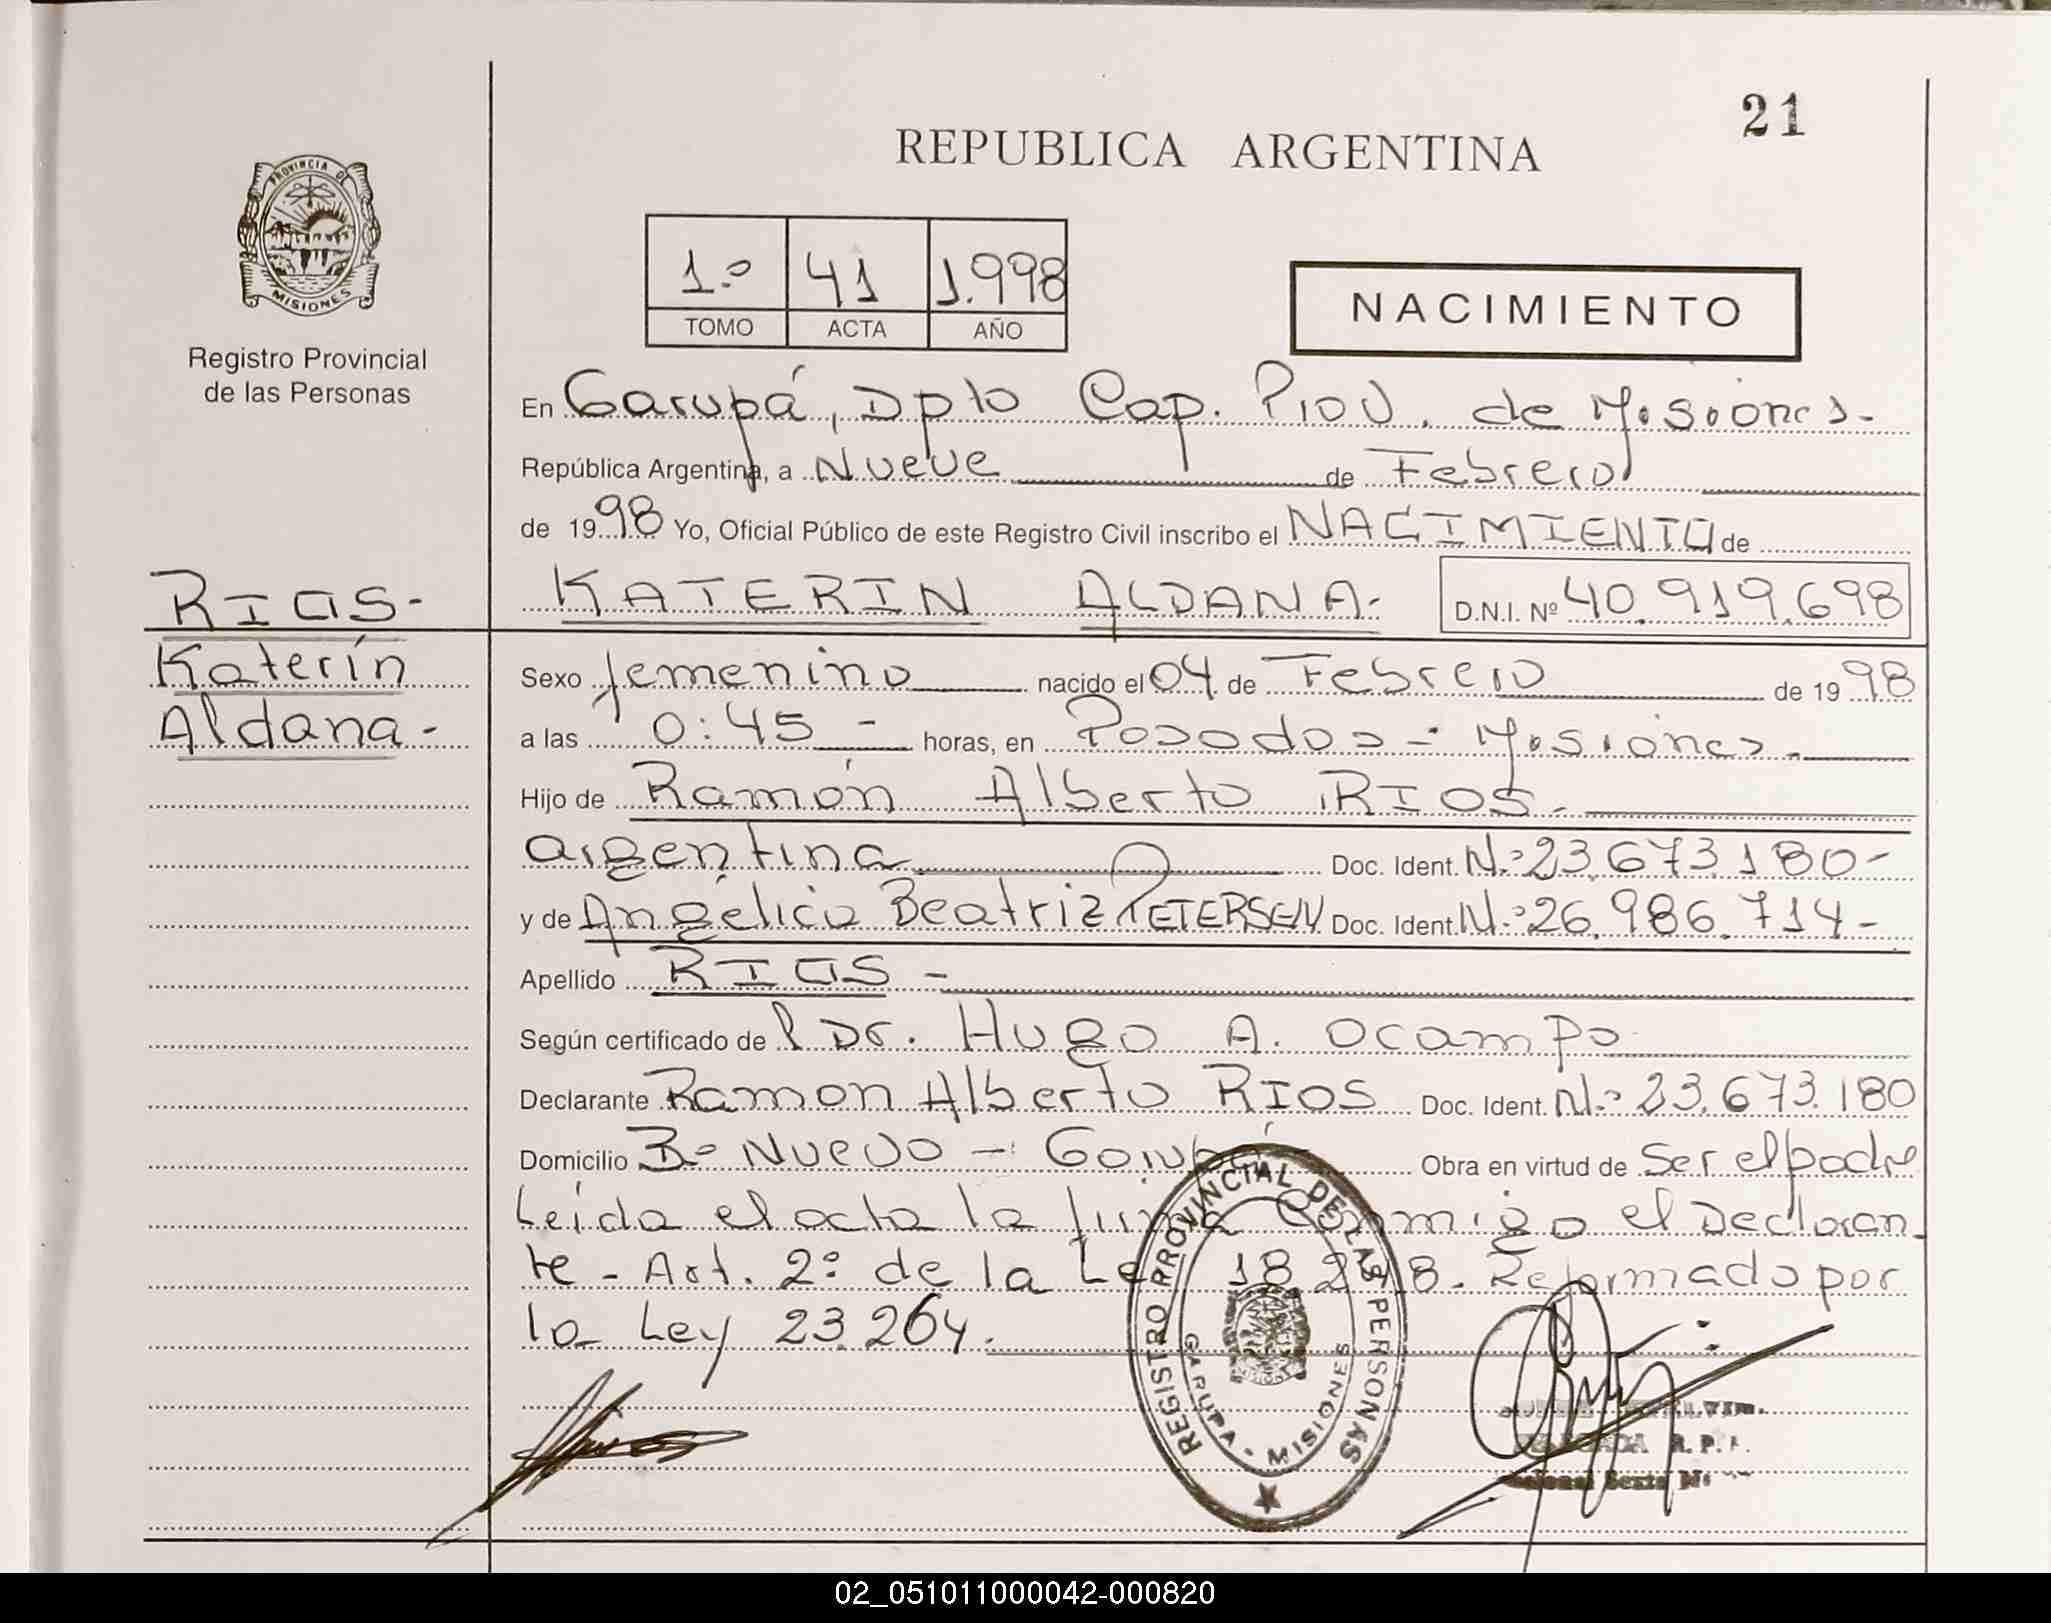 21
REPUBLICA ARGENTINA
PROVINCIA DE
MISIONES
Registro Provincial
de las Personas
1.º 41 1.998
TOMO ACTA AÑO
NACIMIENTO
En Garupá, Dpto Cap. Prov. de Misiones.-
República Argentina, a Nueve de Febrero
de 1998 Yo, Oficial Público de este Registro Civil inscribo el NACIMIENTO de
RIOS.-
KATERIN ALDANA.- D.N.I. Nº 40.919.698
Katerín
Aldana.-
Sexo femenino nacido el 04 de Febrero de 1998
a las 0:45 - horas, en Posadas - Misiones.-
Hijo de Ramón Alberto RIOS.-
argentina Doc. Ident. N.º 23.673.180-
y de Angélica Beatriz PETERSEN Doc. Ident. N.º 26.986.714-
Apellido RIOS -
Según certificado de l Dr. Hugo A. Ocampo
Declarante Ramon Alberto RIOS Doc. Ident. N.º 23.673.180
Domicilio Bº Nuevo - Garupá Obra en virtud de Ser el padre
Leída el acta la firma Conmigo el Declaran_
te - Art. 2º de la Ley 18.248. Reformado por
la Ley 23.264.
REGISTRO PROVINCIAL DE LAS PERSONAS
GARUPA - MISIONES
R. P.
Sexta
02_051011000042-000820